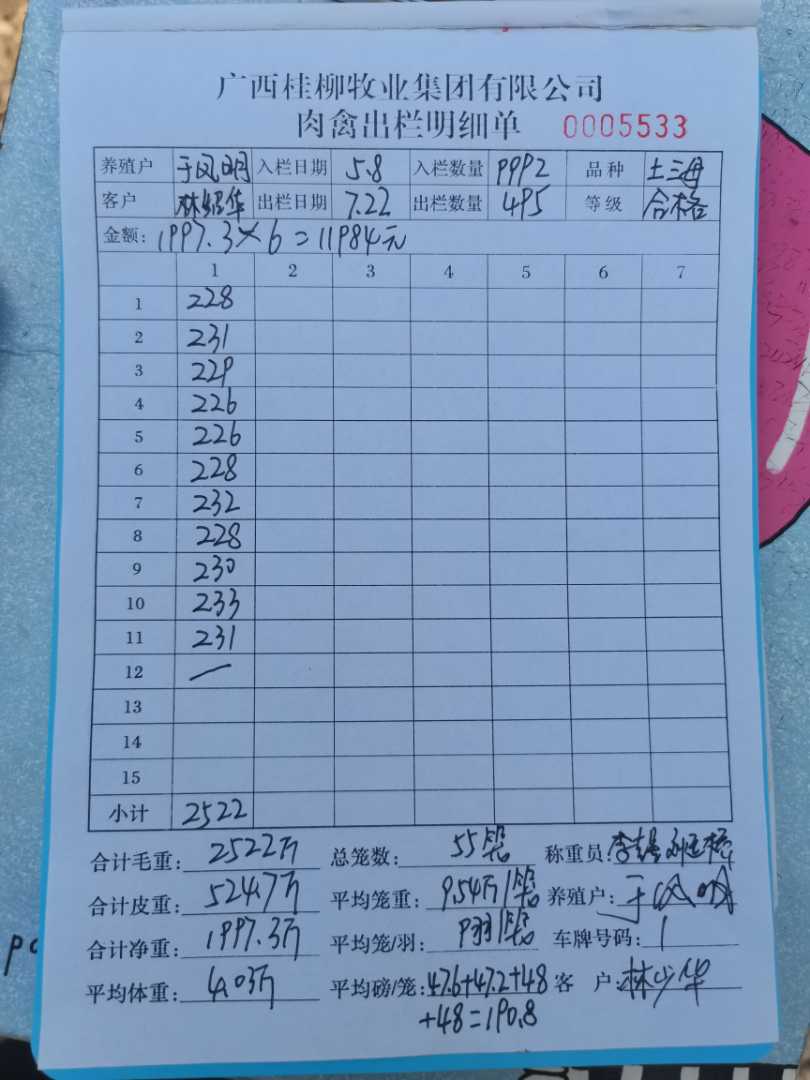 广西桂柳牧业集团有限公司
肉禽出栏明细单 0005533
养殖户 于凤明 入栏日期 5.8 入栏数量 9992 品种 土三母
客户 林绍华 出栏日期 7.22 出栏数量 495 等级 合格
金额: 1997.3×6=11984元
1 2 3 4 5 6 7
1 228
2 231
3 229
4 226
5 226
6 228
7 232
8 228
9 230
10 233
11 231
12 一
13
14
15
小计 2522
合计毛重: 2522斤 总笼数: 55笼 称重员:
合计皮重: 524.7斤 平均笼重: 9.54斤/笼 养殖户: 于凤明
合计净重: 1997.3斤 平均笼/羽: 9羽/笼 车牌号码: 1
平均体重: 4.03斤 平均磅/笼: 47.6+47.2+48 客户: 林少华
+48=190.8